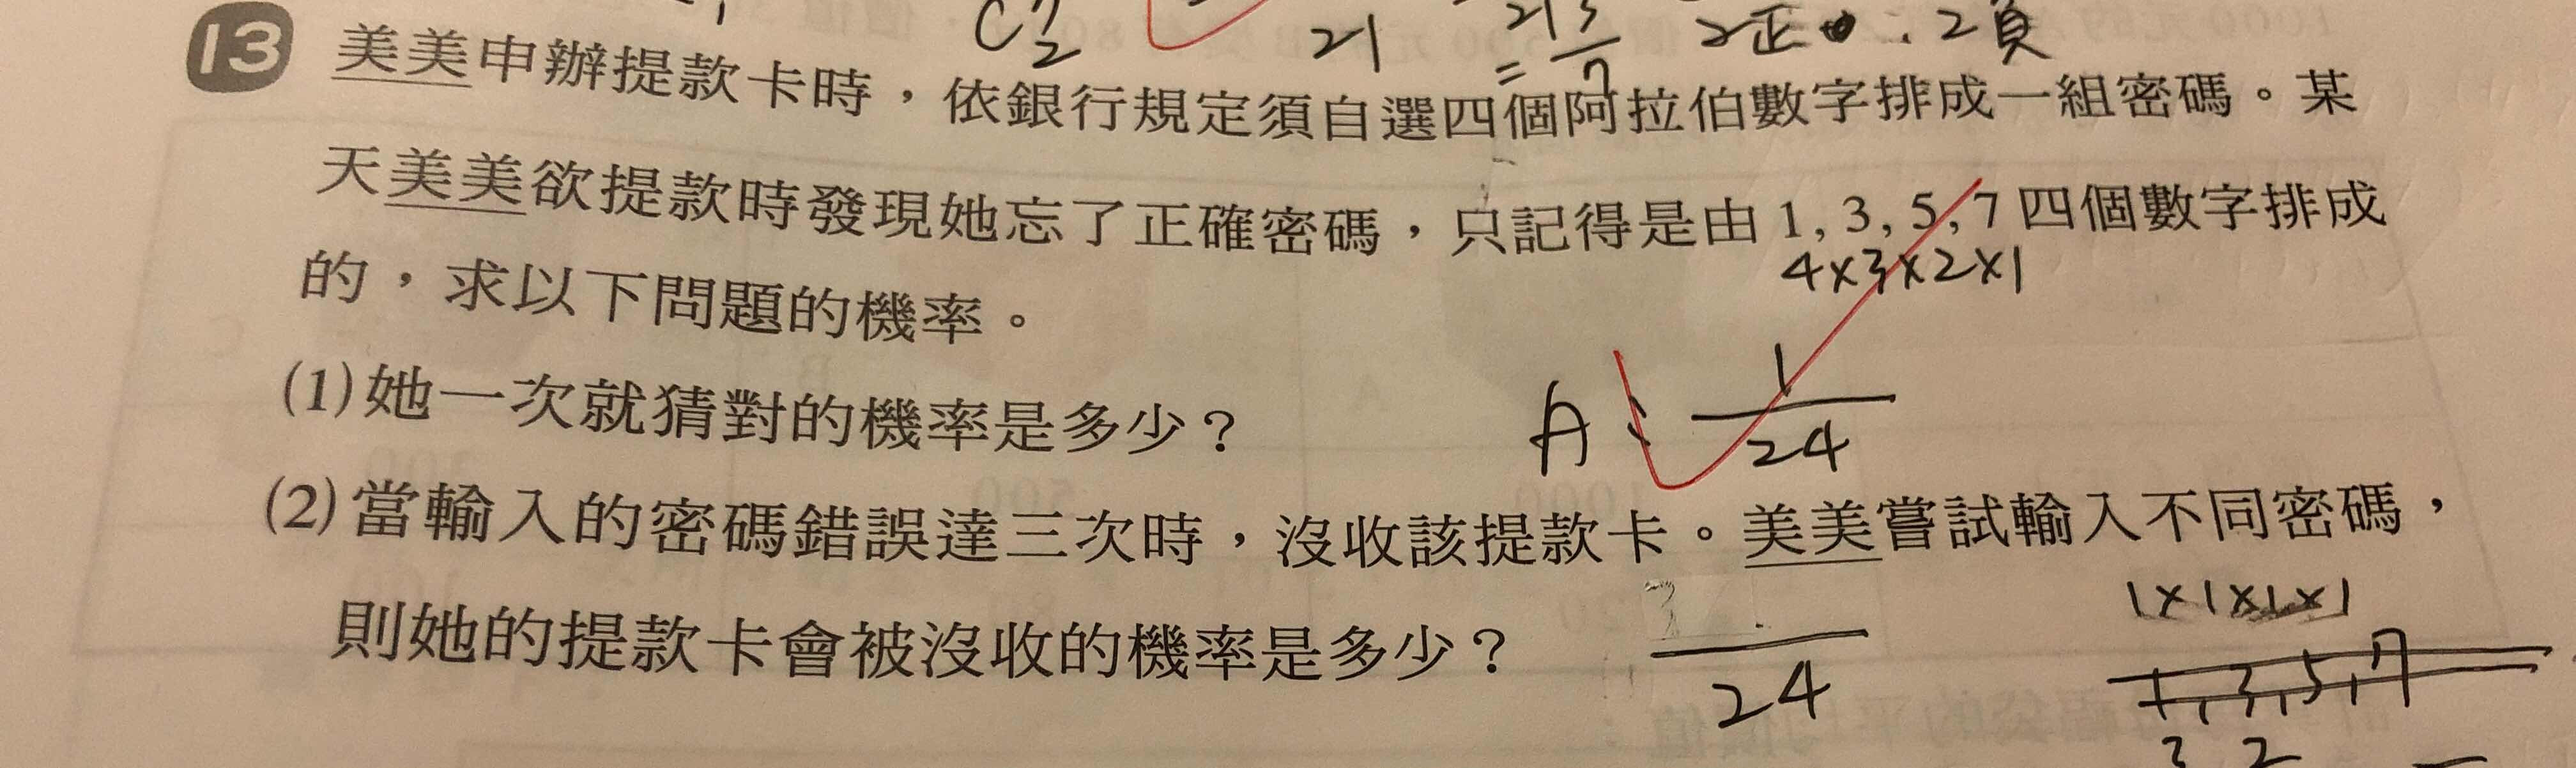 C⁷₂
21
21
3
= ―
7
2正 . 2負
13 美美申辦提款卡時，依銀行規定須自選四個阿拉伯數字排成一組密碼。某
天美美欲提款時發現她忘了正確密碼，只記得是由 1, 3, 5, 7 四個數字排成
4×3×2×1
的，求以下問題的機率。
(1) 她一次就猜對的機率是多少？
A: 1/24
(2) 當輸入的密碼錯誤達三次時，沒收該提款卡。美美嘗試輸入不同密碼，
1×1×1×1
則她的提款卡會被沒收的機率是多少？
24
1, 3, 5, 7
3 2